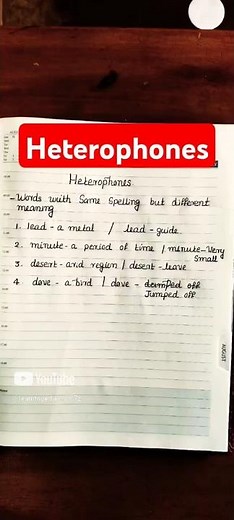 Heterophones
Heterophones
-Words with Same Spelling but different
meaning
1. lead - a metal / lead - guide
2. minute - a period of time / minute - Very
Small
3. desert - arid region / desert - leave
4 dove - a bird / dove -
Jumped off
YouTube
AUGUST